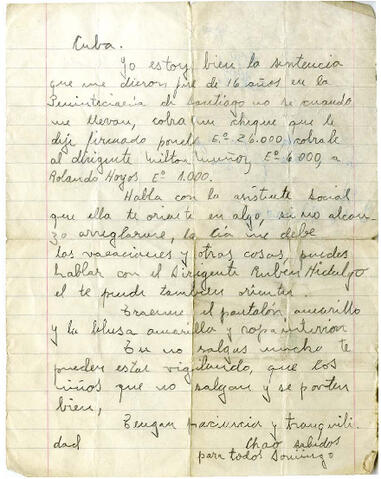 Cuba.
Yo estoy bien la sentencia
que me dieron fue de 16 años en la
Penintecieria de Santiago no se cuando
me llevan, cobra un cheque que te
deje firmado ponele Eº. 26.000 cobrale
al dirigente Milton Muñoz Eº 6.000, a
Rolando Hoyos Eº 1.000.
Habla con la asistente social
que ella te oriente en algo, si no alcan-
zo arreglarme, la Cia me debe
las vacaciones y otras cosas, puedes
hablar con el Dirigente Ruben Hidalgo
el te puede tambien orientar.
Traeme el pantalón amarillo
y la blusa amarilla y ropa interior
Tu no salgas mucho te
pueden estar vigilando, que los
niños que no salgan y se porten
bien,
Tengan paciencia y tranquili-
dad Chao saludos
para todos Domingo